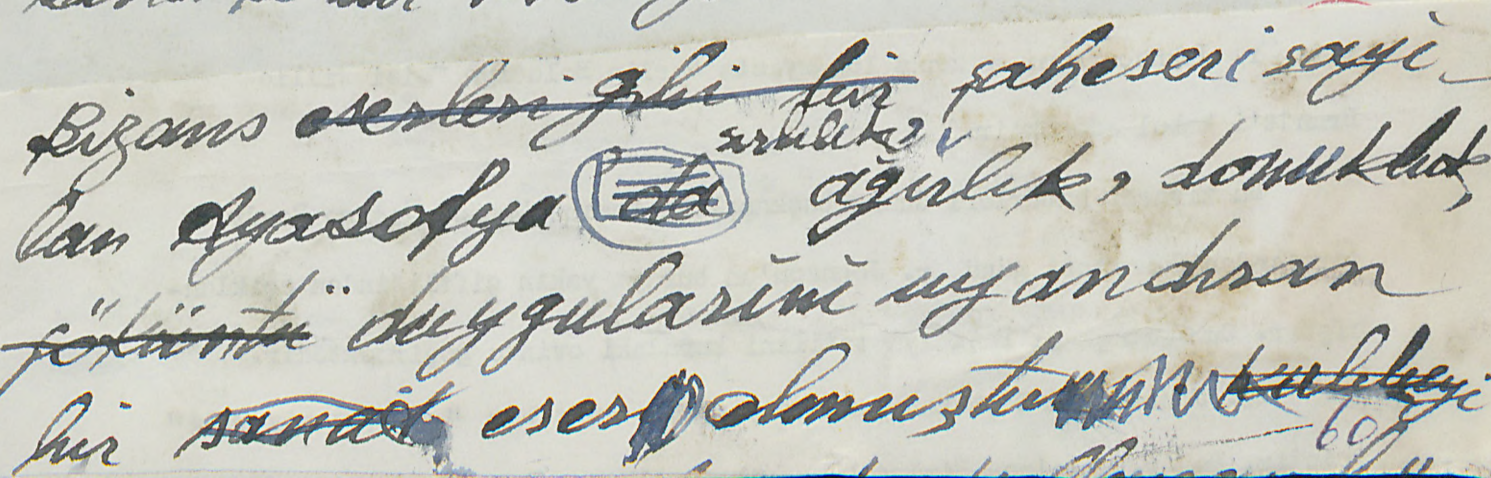 Bizans eserleri gibi bir şaheseri sayı-
lan Ayasofya da ağırlık, donukluk,
çöküntü duygularını uyandıran
bir sanat eser olmuştur. kubbeyi
60